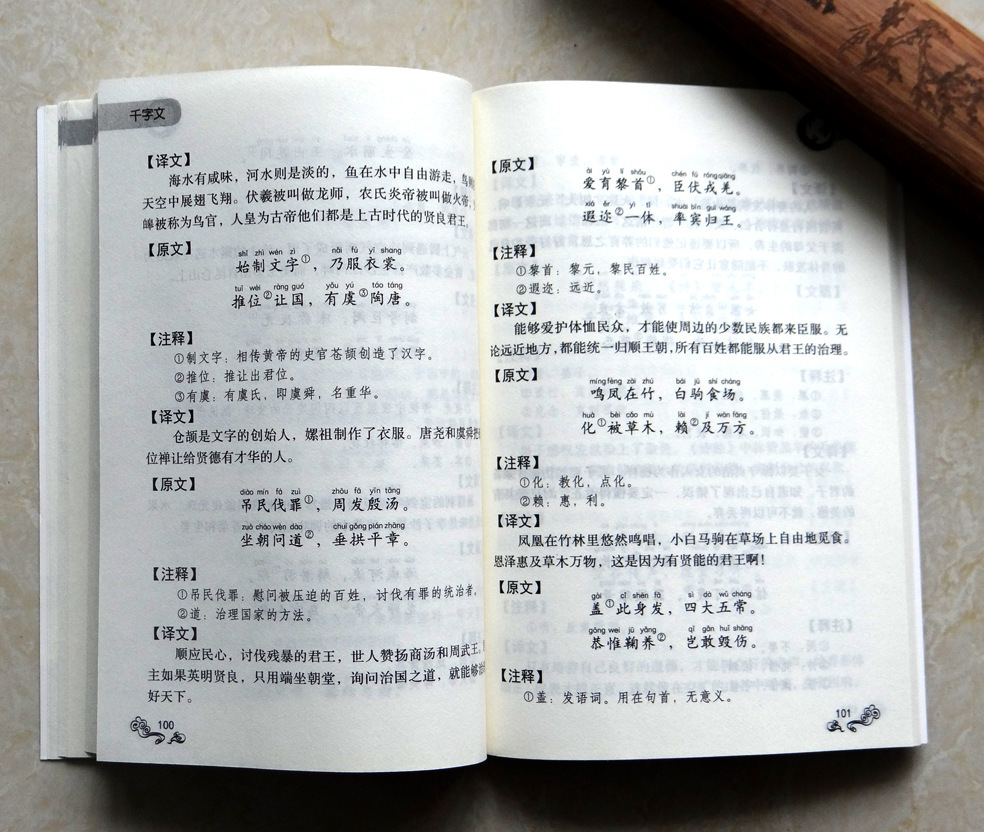 千字文
【译文】
海水有咸味，河水则是淡的，鱼在水中自由游走，鸟
天空中展翅飞翔。伏羲被叫做龙师，农氏炎帝被叫做火帝，
皞被称为鸟官，人皇为古帝他们都是上古时代的贤良君王。
【原文】
shǐ zhì wén zì nǎi fú yī shang
始制文字①，乃服衣裳。
tuī wèi ràng guó yǒu yú táo táng
推位②让国，有虞③陶唐。
【注释】
①制文字：相传黄帝的史官苍颉创造了汉字。
②推位：推让出君位。
③有虞：有虞氏，即虞舜，名重华。
【译文】
仓颉是文字的创始人，嫘祖制作了衣服。唐尧和虞舜把
位禅让给贤德有才华的人。
【原文】
diào mín fá zuì zhōu fā yīn tāng
吊民伐罪①，周发殷汤。
zuò cháo wèn dào chuí gǒng pián zhāng
坐朝问道②，垂拱平章。
【注释】
①吊民伐罪：慰问被压迫的百姓，讨伐有罪的统治者。
②道：治理国家的方法。
【译文】
顺应民心，讨伐残暴的君王，世人赞扬商汤和周武王。
主如果英明贤良，只用端坐朝堂，询问治国之道，就能够治
好天下。
100
【原文】
ài yù lí shǒu chén fú róng qiāng
爱育黎首①，臣伏戎羌。
xiá ěr yì tǐ shuài bīn guī wáng
遐迩②一体，率宾归王。
【注释】
①黎首：黎元，黎民百姓。
②遐迩：远近。
【译文】
能够爱护体恤民众，才能使周边的少数民族都来臣服。无
论远近地方，都能统一归顺王朝，所有百姓都能服从君王的治理。
【原文】
míng fèng zài zhú bái jū shí chǎng
鸣凤在竹，白驹食场。
huà bèi cǎo mù lài jí wàn fāng
化①被草木，赖②及万方。
【注释】
①化：教化，点化。
②赖：惠，利。
【译文】
凤凰在竹林里悠然鸣唱，小白马驹在草场上自由地觅食。
恩泽惠及草木万物，这是因为有贤能的君王啊！
【原文】
gài cǐ shēn fà sì dà wǔ cháng
盖①此身发，四大五常。
gōng wéi jū yǎng qǐ gǎn huǐ shāng
恭惟鞠养②，岂敢毁伤。
【注释】
①盖：发语词。用在句首，无意义。
101